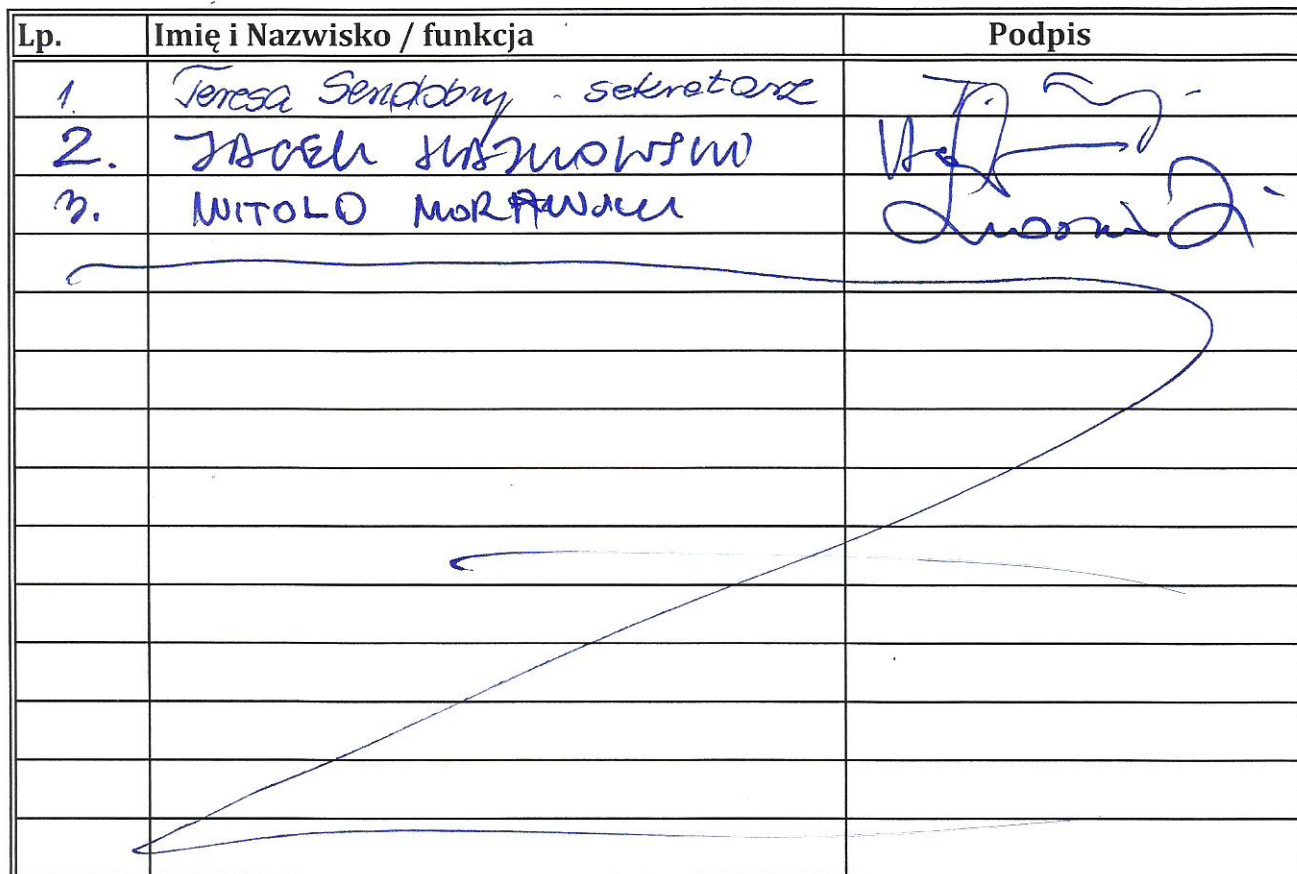 Lp. Imię i Nazwisko / funkcja Podpis
1. Teresa Sendobry - sekretarz
2. JACEK
3. WITOLD MORAWSKI